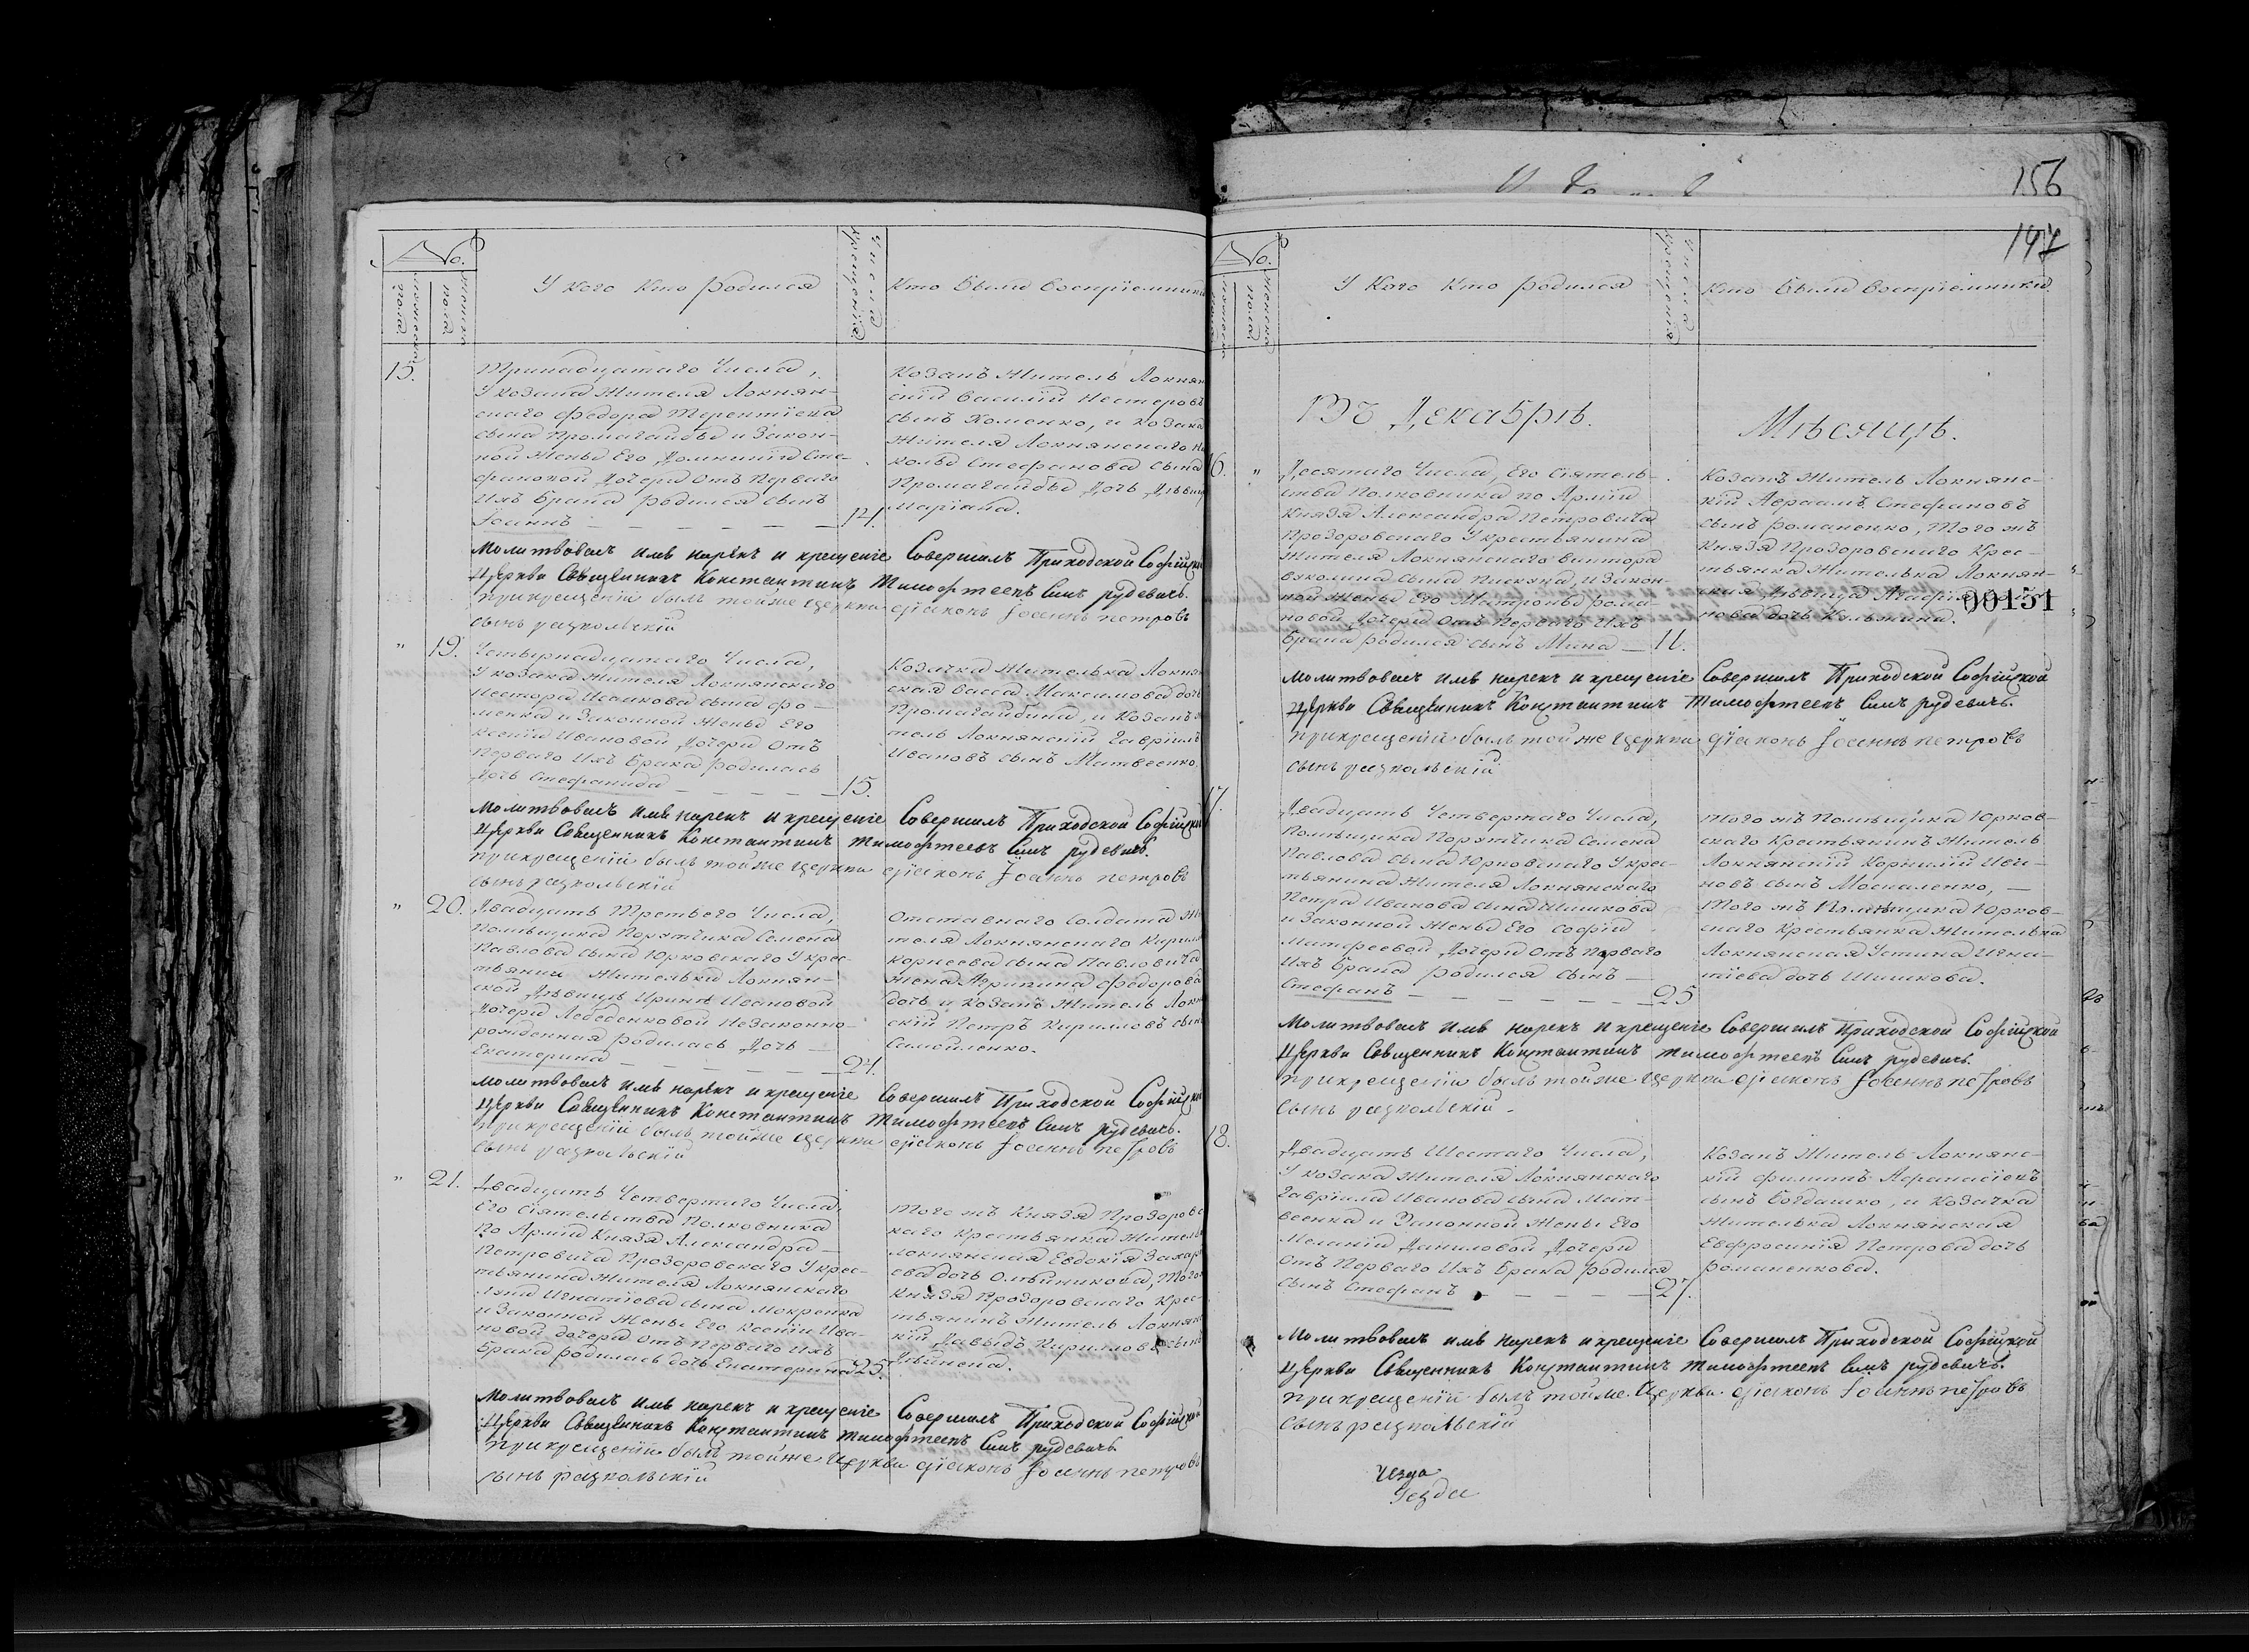 №
мужеска пола
женска пола
У кого кто родился
числа крещенія
Кто были воспріемники
15.
Тринадцатаго Числа,
У козака Жителя Локнян-
скаго Федора Терентіева
сына Промагайбы и Закон-
ной Жены Его Домникіи Сте-
фановой Дочери Отъ Перваго
Ихъ Брака Родился Сынъ
Іоаннъ — 14.
Козакъ Житель Локнян
скій Василій Нестеровъ
сынъ Хоменко, и Козака
Жителя Локнянскаго Ни
колы Стефанова Сына
Промагайбы Дочь Дѣвиц
Маріана.
Молитвовалъ имѣ нарекъ и крещеніе Совершилъ Приходской Софійско
Церкви Священникъ Константинъ Тимофтеевъ Сынъ рудевичъ.
прикрещеніи былъ тойже церкви діяконъ Іоаннъ петровъ
сынъ рацкольскій
" 19.
Четырнадцатаго Числа,
У козака Жителя Локнянскаго
Нестора Исаикова сына Фо-
менка и Законной Жены Его
Ксеніи Ивановой Дочери Отъ
Перваго Ихъ Брака Родилась
Дочь Стефанида — 15.
Козачка Жителька Локнян
ская Васса Максимова дочь
Промагайбина, и Козакъ
тель Локнянскій Гавріилъ
Ивановъ сынъ Матвеенко.
Молитвовалъ имѣ нарекъ и крещеніе Совершилъ Приходской Софійской
Церкви Священникъ Константинъ тимофтеевъ Сынъ рудевичъ.
прикрещеніи былъ тойже церкви діяконъ Іоаннъ петровъ
сынъ рацкольскій
" 20.
Двадцать Третьего Числа,
Помѣщика Порутчика Семена
Павлова сына Юрковскаго У крес-
тьянки Жительки Локнян-
ской Дѣвицы Ирины Ивановой
Дочери Лебеденковой Незаконно-
рожденная Родилась Дочь —
Екатерина — 24.
Отставнаго Солдата Жи
теля Локнянскаго Кирил
Корнеева сына Павловича
Жена Агрипина Федорова
дочь и Козакъ Житель Локн
скій Петръ Кирилловъ сынъ
Самойленко.
Молитвовалъ имѣ нарекъ и крещеніе Совершилъ Приходской Софійско
Церкви Священникъ Константинъ Тимофтеевъ Сынъ рудевичъ.
прикрещеніи былъ тойже церкви діяконъ Іоаннъ петровъ
сынъ рацкольскій
" 21.
Двадцать Четвертаго Числа,
Его Сіятельства Полковника
По Арміи Князя Александра —
Петровича Прозоровскаго У крес-
тьянина Жителя Локнянскаго
Игнатіева сына Мокренка
и Законной Жены Его Ксеніи Ива-
новой дочери Отъ Перваго Ихъ
Брака родилась дочь Екатерина 25.
Того жъ Князя Прозоровс
каго Крестьянка Жителька
Локнянская Евдокія Захар
ева дочь Олѣйникова, Того
Князя Прозоровскаго Крес-
тьянинъ Житель Локнянс
кій Давыдъ Кирилловъ сынъ
Молитвовалъ имѣ нарекъ и крещеніе Совершилъ Приходской Софійской
Церкви Священникъ Константинъ тимофтеевъ Сынъ рудевичъ
прикрещеніи былъ тойже Церкви діяконъ Іоаннъ петровъ
сынъ рацкольскій
156
147
№
мужеска пола
женска пола
У Кого Кто родился
числа крещенія
Кто были воспріемники.
Въ Декабрѣ.
Мѣсяцѣ.
16. "
Десятаго Числа, Его Сіятель-
ства Полковника по Арміи
Князя Александра Петровича
Прозоровскаго У крестьянина
Жителя Локнянскаго Виктора
сына Пискуна, и Закон-
ной Жены Его Матроны Рома-
новой Дочери Отъ Перваго Ихъ
Брака родился сынъ Мина — 11.
Козакъ Житель Локнянс-
кій Авраамъ Стефановъ
сынъ Романенко, Того жъ
Князя Прозоровскаго Крес-
тьянка Жителька Локнян-
ская Дѣвица Агафія
нова дочь
00151
Молитвовалъ имѣ нарекъ и крещеніе Совершилъ Приходской Софійской
Церкви Священникъ Константинъ Тимофтеевъ Сынъ рудевичъ.
прикрещеніи былъ той же церкви діяконъ Іоаннъ петровъ
сынъ рацкольскій
17.
Двадцать Четвертаго Числа,
Помѣщика Порутчика Семена
Павлова сына Юрковскаго У крес-
тьянина Жителя Локнянскаго
Петра Иванова сына Шишкова
и Законной Жены Его Софіи
Матфеевой Дочери Отъ Перваго
Ихъ Брака родился сынъ —
Стефанъ — 25
Того жъ Помѣщика Юрков-
скаго Крестьянинъ Житель
Локнянскій Корнилій Ива-
новъ сынъ Москаленко, —
Того жъ Помѣщика Юрков-
скаго Крестьянка Жителька
Локнянская Устина Игна-
тіева дочь Шишкова.
Молитвовалъ имѣ нарекъ и крещеніе Совершилъ Приходской Софійской
Церкви Священникъ Константинъ тимофтеевъ Сынъ рудевичъ.
прикрещеніи былъ тойже церкви діяконъ Іоаннъ петровъ
сынъ рацкольскій.
18.
Двадцать Шестаго Числа,
У козака Жителя Локнянскаго
Гавріила Иванова сына Мат-
веенка и Законной Жены Его
Меланіи Даниловой Дочери
Отъ Перваго Ихъ Брака родился
сынъ Стефанъ — 27.
Козакъ Житель Локнянс-
кій Филипъ Афанасіевъ
сынъ Богдашко, и Козачка
Жителька Локнянская
Евфросинія Петрова дочь
Романенкова.
Молитвовалъ имѣ нарекъ и крещеніе Совершилъ Приходской Софійской
Церкви Священникъ Константинъ тимофтеевъ Сынъ рудевичъ.
прикрещеніи былъ тойже Церкви діяконъ Іоаннъ петровъ
сынъ рацкольскій